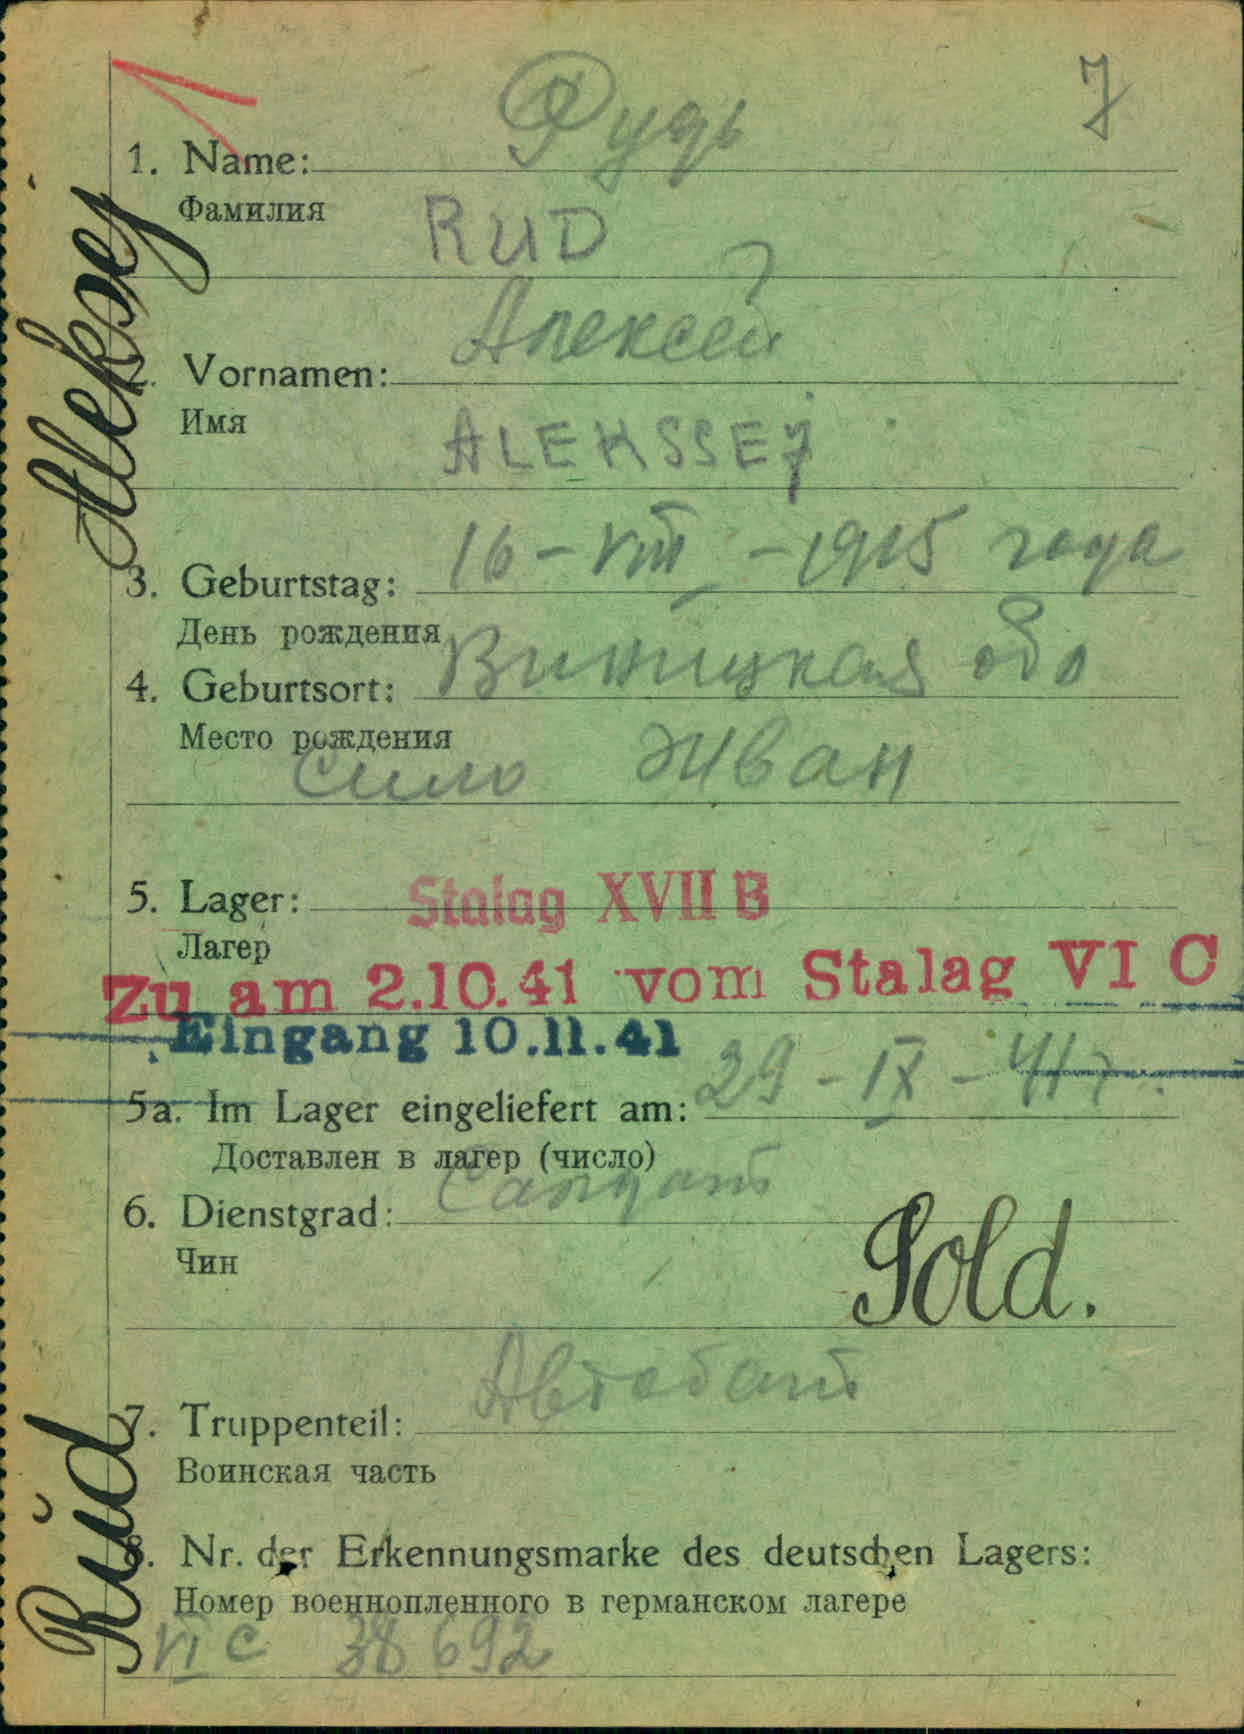 7
Рудь
1. Name:
Фамилия
RUD
Алексей
2. Vornamen:
Имя
ALEKSSEJ
3. Geburtstag: 16-VIII-1915 года
День рождения
4. Geburtsort: Виницкая обл
Место рождения
Сило Жван
5. Lager: Stalag XVII B
Лагер
Zu am 2.10.41 vom Stalag VI C
Eingang 10.11.41
5a. Im Lager eingeliefert am: 29-IX-41 г.
Доставлен в лагер (число)
6. Dienstgrad: Солдат
Чин
Sold.
Автобат
7. Truppenteil:
Воинская часть
8. Nr. der Erkennungsmarke des deutschen Lagers:
Номер военнопленного в германском лагере
VI C 38692
Rud Aleksej